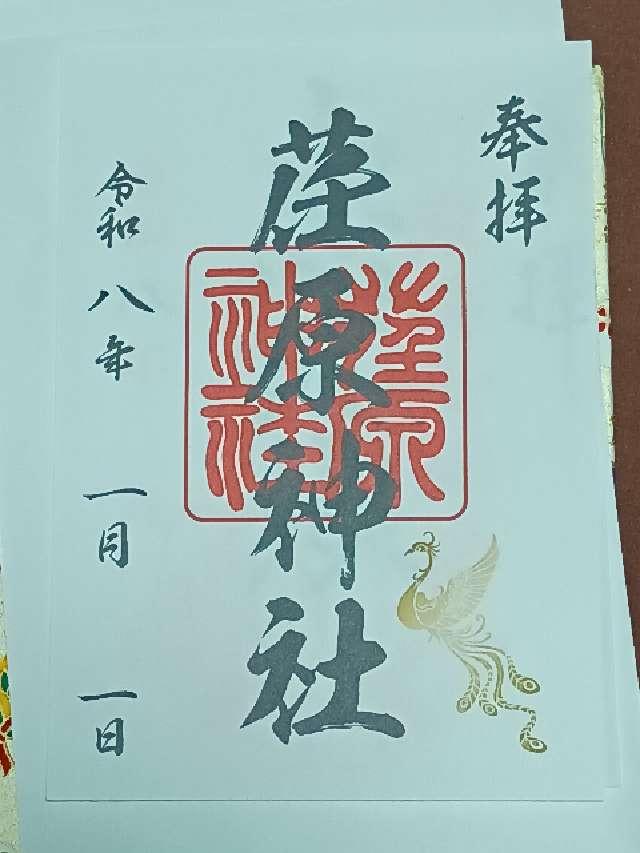 奉拝
荏原神社
荏原
神社
令和八年一月一日